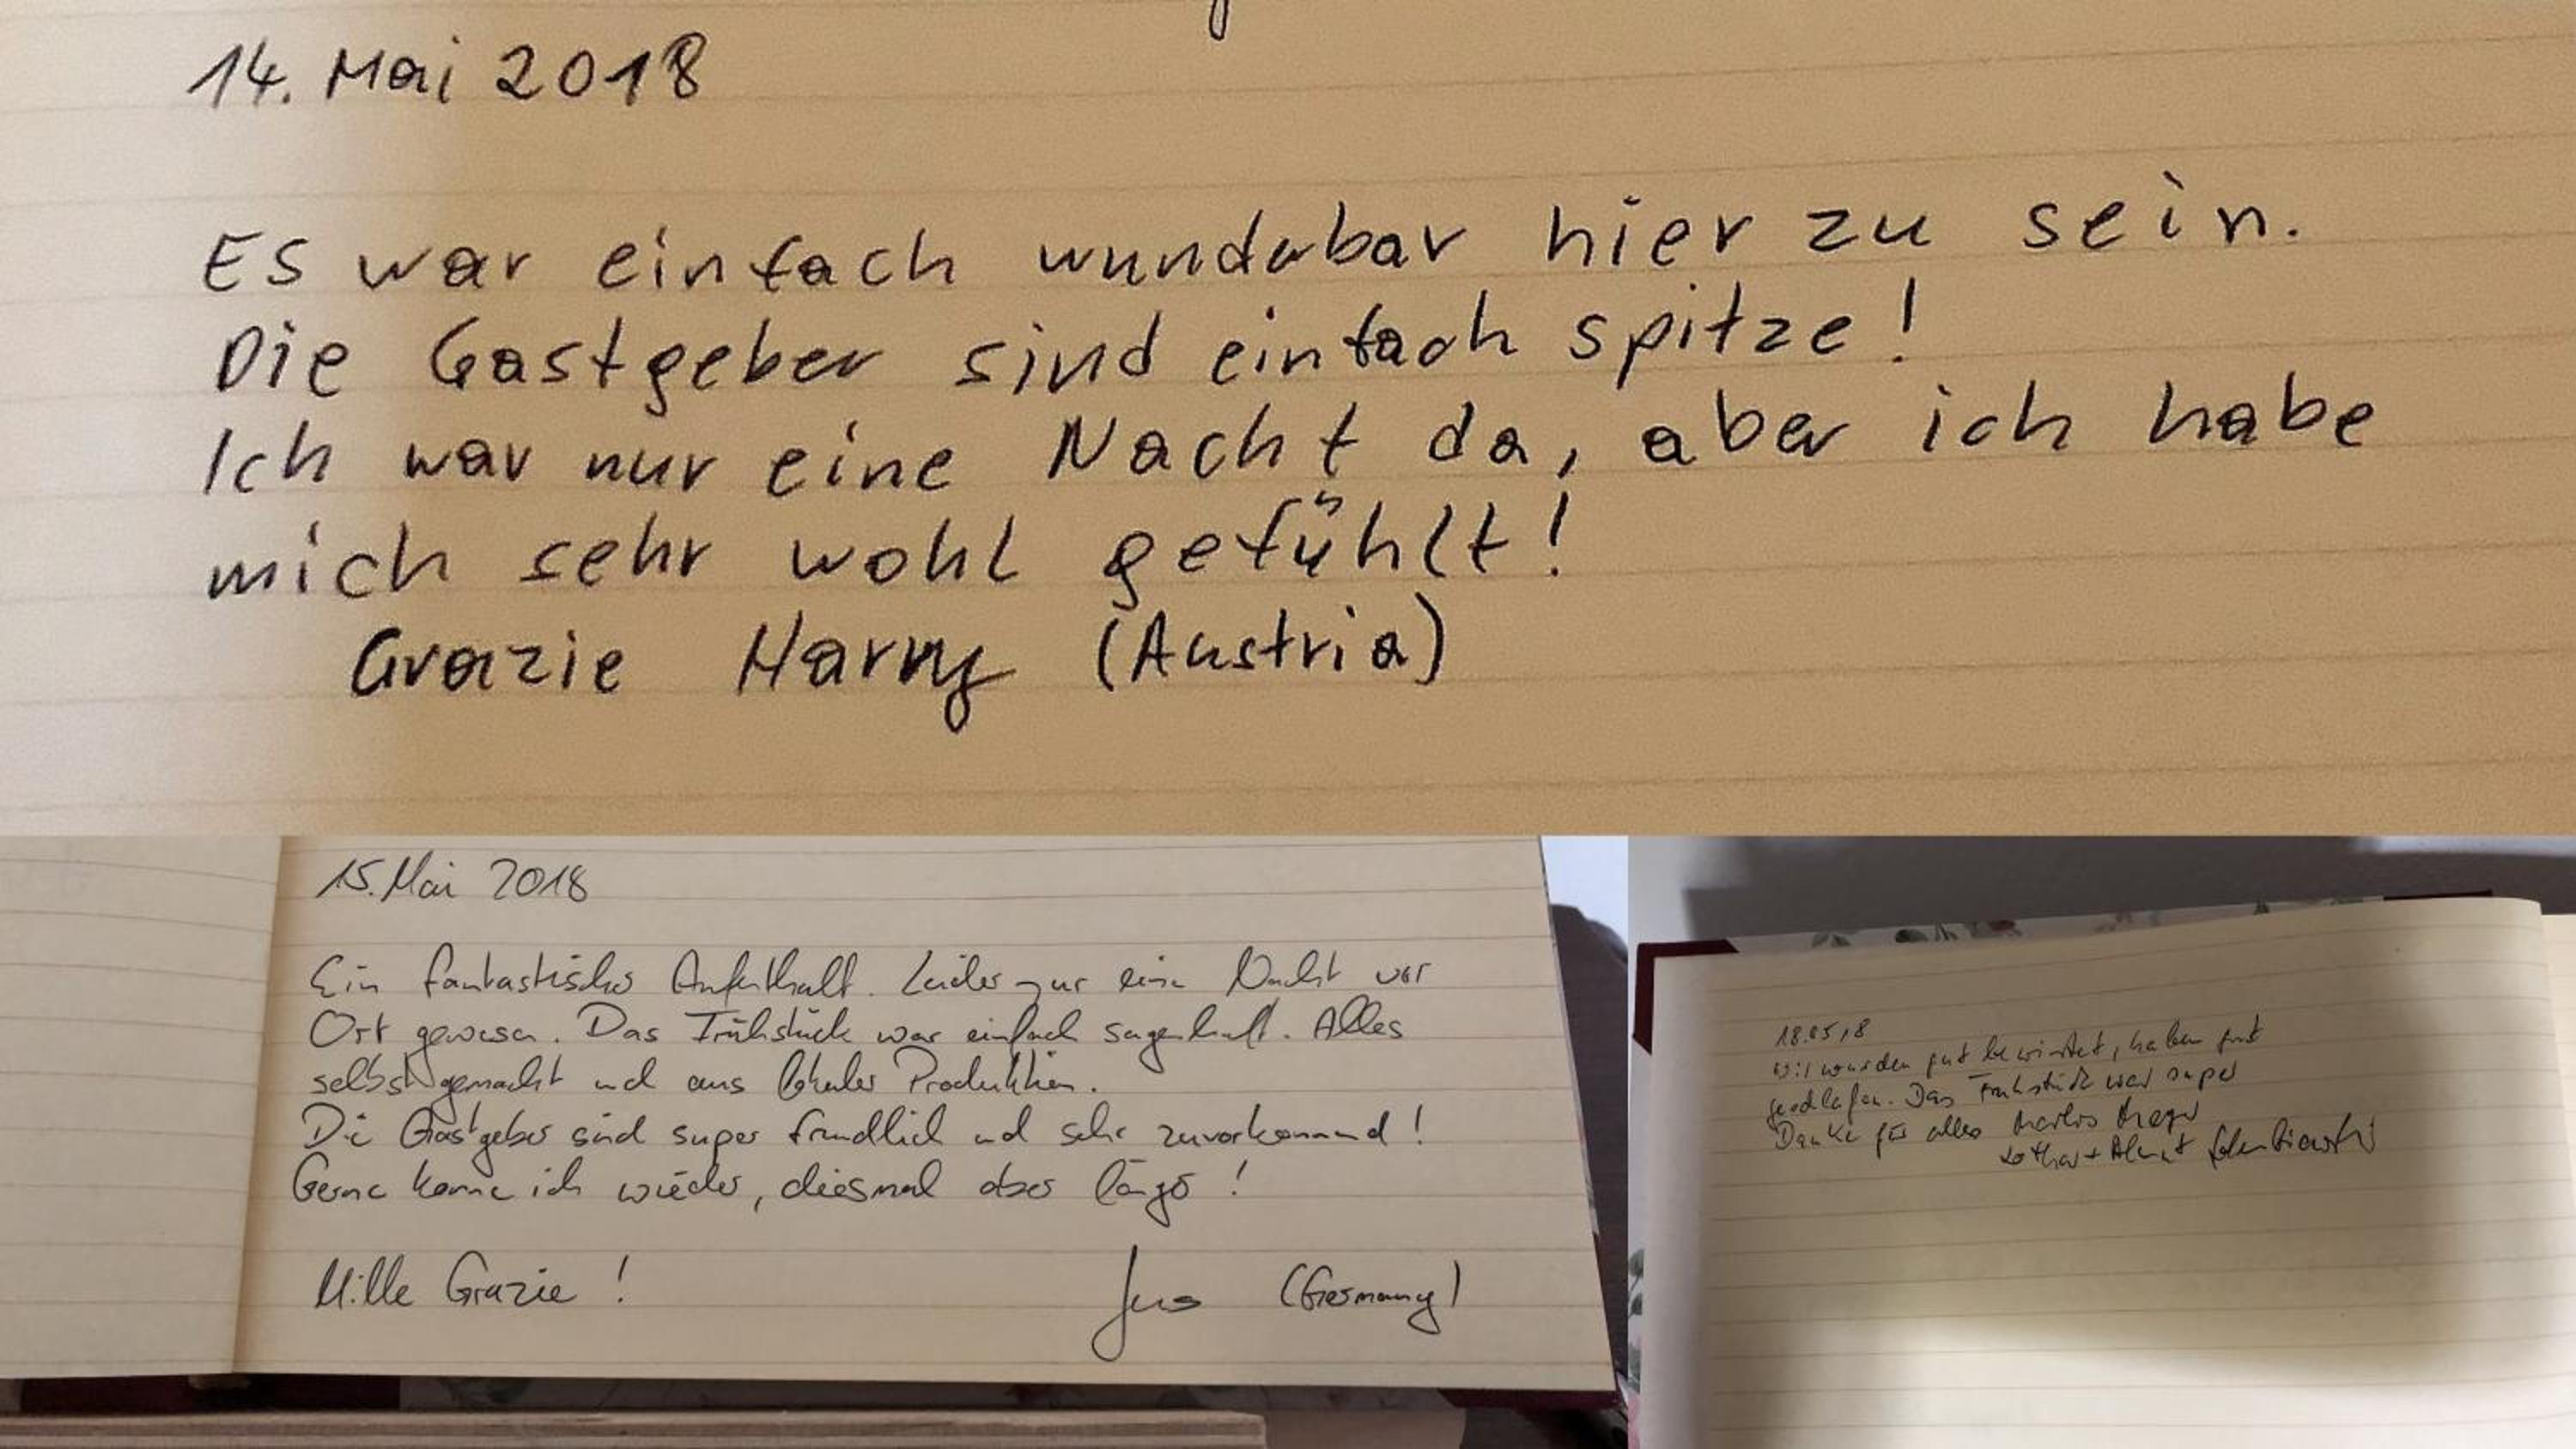 14. Mai 2018
Es war einfach wunderbar hier zu sein.
Die Gastgeber sind einfach spitze!
Ich war nur eine Nacht da, aber ich habe
mich sehr wohl gefühlt!
Grazie Harry (Austria)
15. Mai 2018
Ein fantastischer Aufenthalt. Leider nur eine Nacht vor
Ort gewesen. Das Frühstück war einfach sagenhaft. Alles
selbst gemacht und aus lokaler Produktion.
Die Gastgeber sind super freundlich und sehr zuvorkommend!
Gerne komme ich wieder, diesmal aber länger!
Mille Grazie! Jens (Germany)
18.05.18
Wir wurden gut bewirtet, haben gut
geschlafen. Das Frühstück war super
Danke für alles
Lothar + Almut